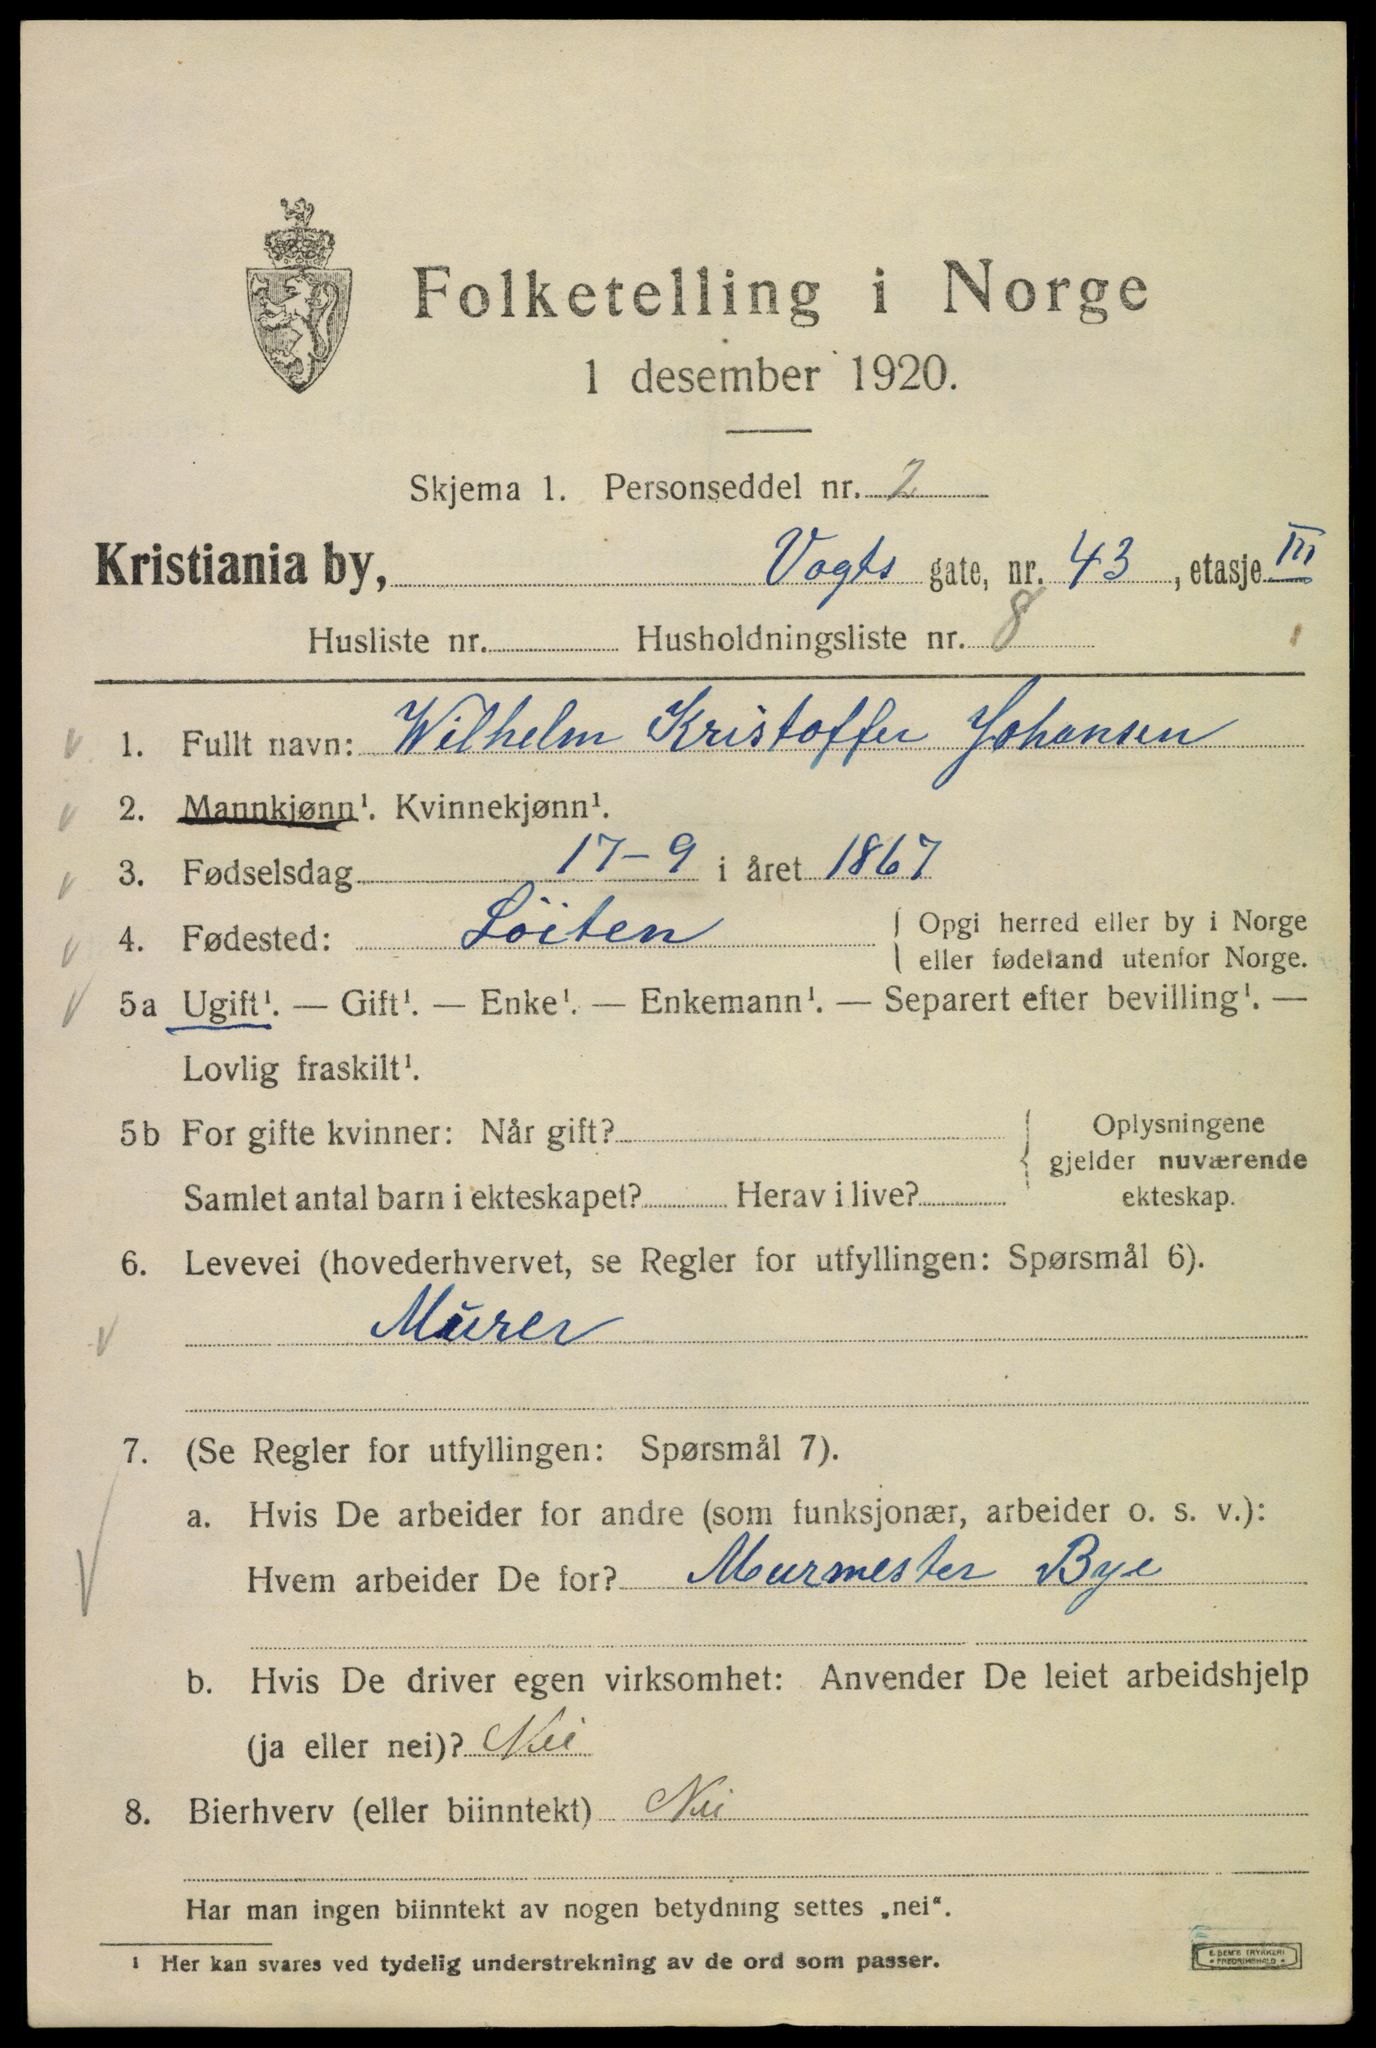 Folketelling i Norge
1 desember 1920.
Skjema 1. Personseddel nr. 2
Kristiania by, Vogts gate, nr. 43, etasje III
Husliste nr. Husholdningsliste nr. 8
1. Fullt navn: Wilhelm Kristoffer Johansen
2. Mannkjønn¹. Kvinnekjønn¹.
3. Fødselsdag 17-9 i året 1867
4. Fødested: Löiten { Opgi herred eller by i Norge
eller fødeland utenfor Norge.
5a Ugift¹. — Gift¹. — Enke¹. — Enkemann¹. — Separert efter bevilling¹. —
Lovlig fraskilt¹.
5b For gifte kvinner: Når gift? { Oplysningene
gjelder nuværende
Samlet antal barn i ekteskapet? Herav i live? ekteskap.
6. Levevei (hovederhvervet, se Regler for utfyllingen: Spørsmål 6).
Murer
7. (Se Regler for utfyllingen: Spørsmål 7).
a. Hvis De arbeider for andre (som funksjonær, arbeider o. s. v.):
Hvem arbeider De for? Murmester Bye
b. Hvis De driver egen virksomhet: Anvender De leiet arbeidshjelp
(ja eller nei)? Nei
8. Bierhverv (eller biinntekt) Nei
Har man ingen biinntekt av nogen betydning settes „nei“.
¹ Her kan svares ved tydelig understrekning av de ord som passer.
E. SEM'S TRYKKERI
* FREDRIKSHALD *